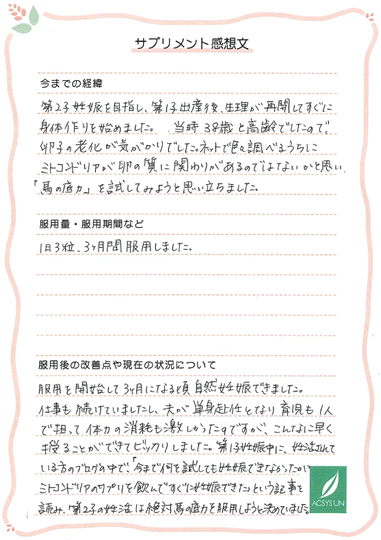 サプリメント感想文
今までの経緯
第2子妊娠を目指し、第1子出産後、生理が再開してすぐに
身体作りを始めました。当時38歳と高齢でしたので、
卵子の老化が気がかりでした。ネットで色々調べるうちに
ミトコンドリアが卵の質に関わりがあるのではないかと思い、
「馬の底力」を試してみようと思い立ちました。
服用量・服用期間など
1日3粒、3ヶ月間服用しました。
服用後の改善点や現在の状況について
服用を開始して3ヶ月になる頃自然妊娠できました。
仕事も続けていましたし、夫が単身赴任となり育児も1人
で担って体力の消耗も激しかったのですが、こんなに早く
授ることができてビックリしました。第1子妊娠中に、妊活して
いる方のブログの中で、「今まで何を試しても妊娠できなかったが
ミトコンドリアのサプリを飲んですぐに妊娠できた」という記事を
読み、「第2子の妊活は絶対馬の底力を服用しようと決めていました
ACSYSUN